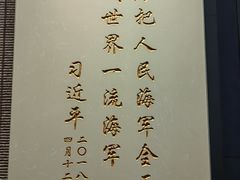 把人民海军全
世界一流海军
习近平
二〇一八
四月十